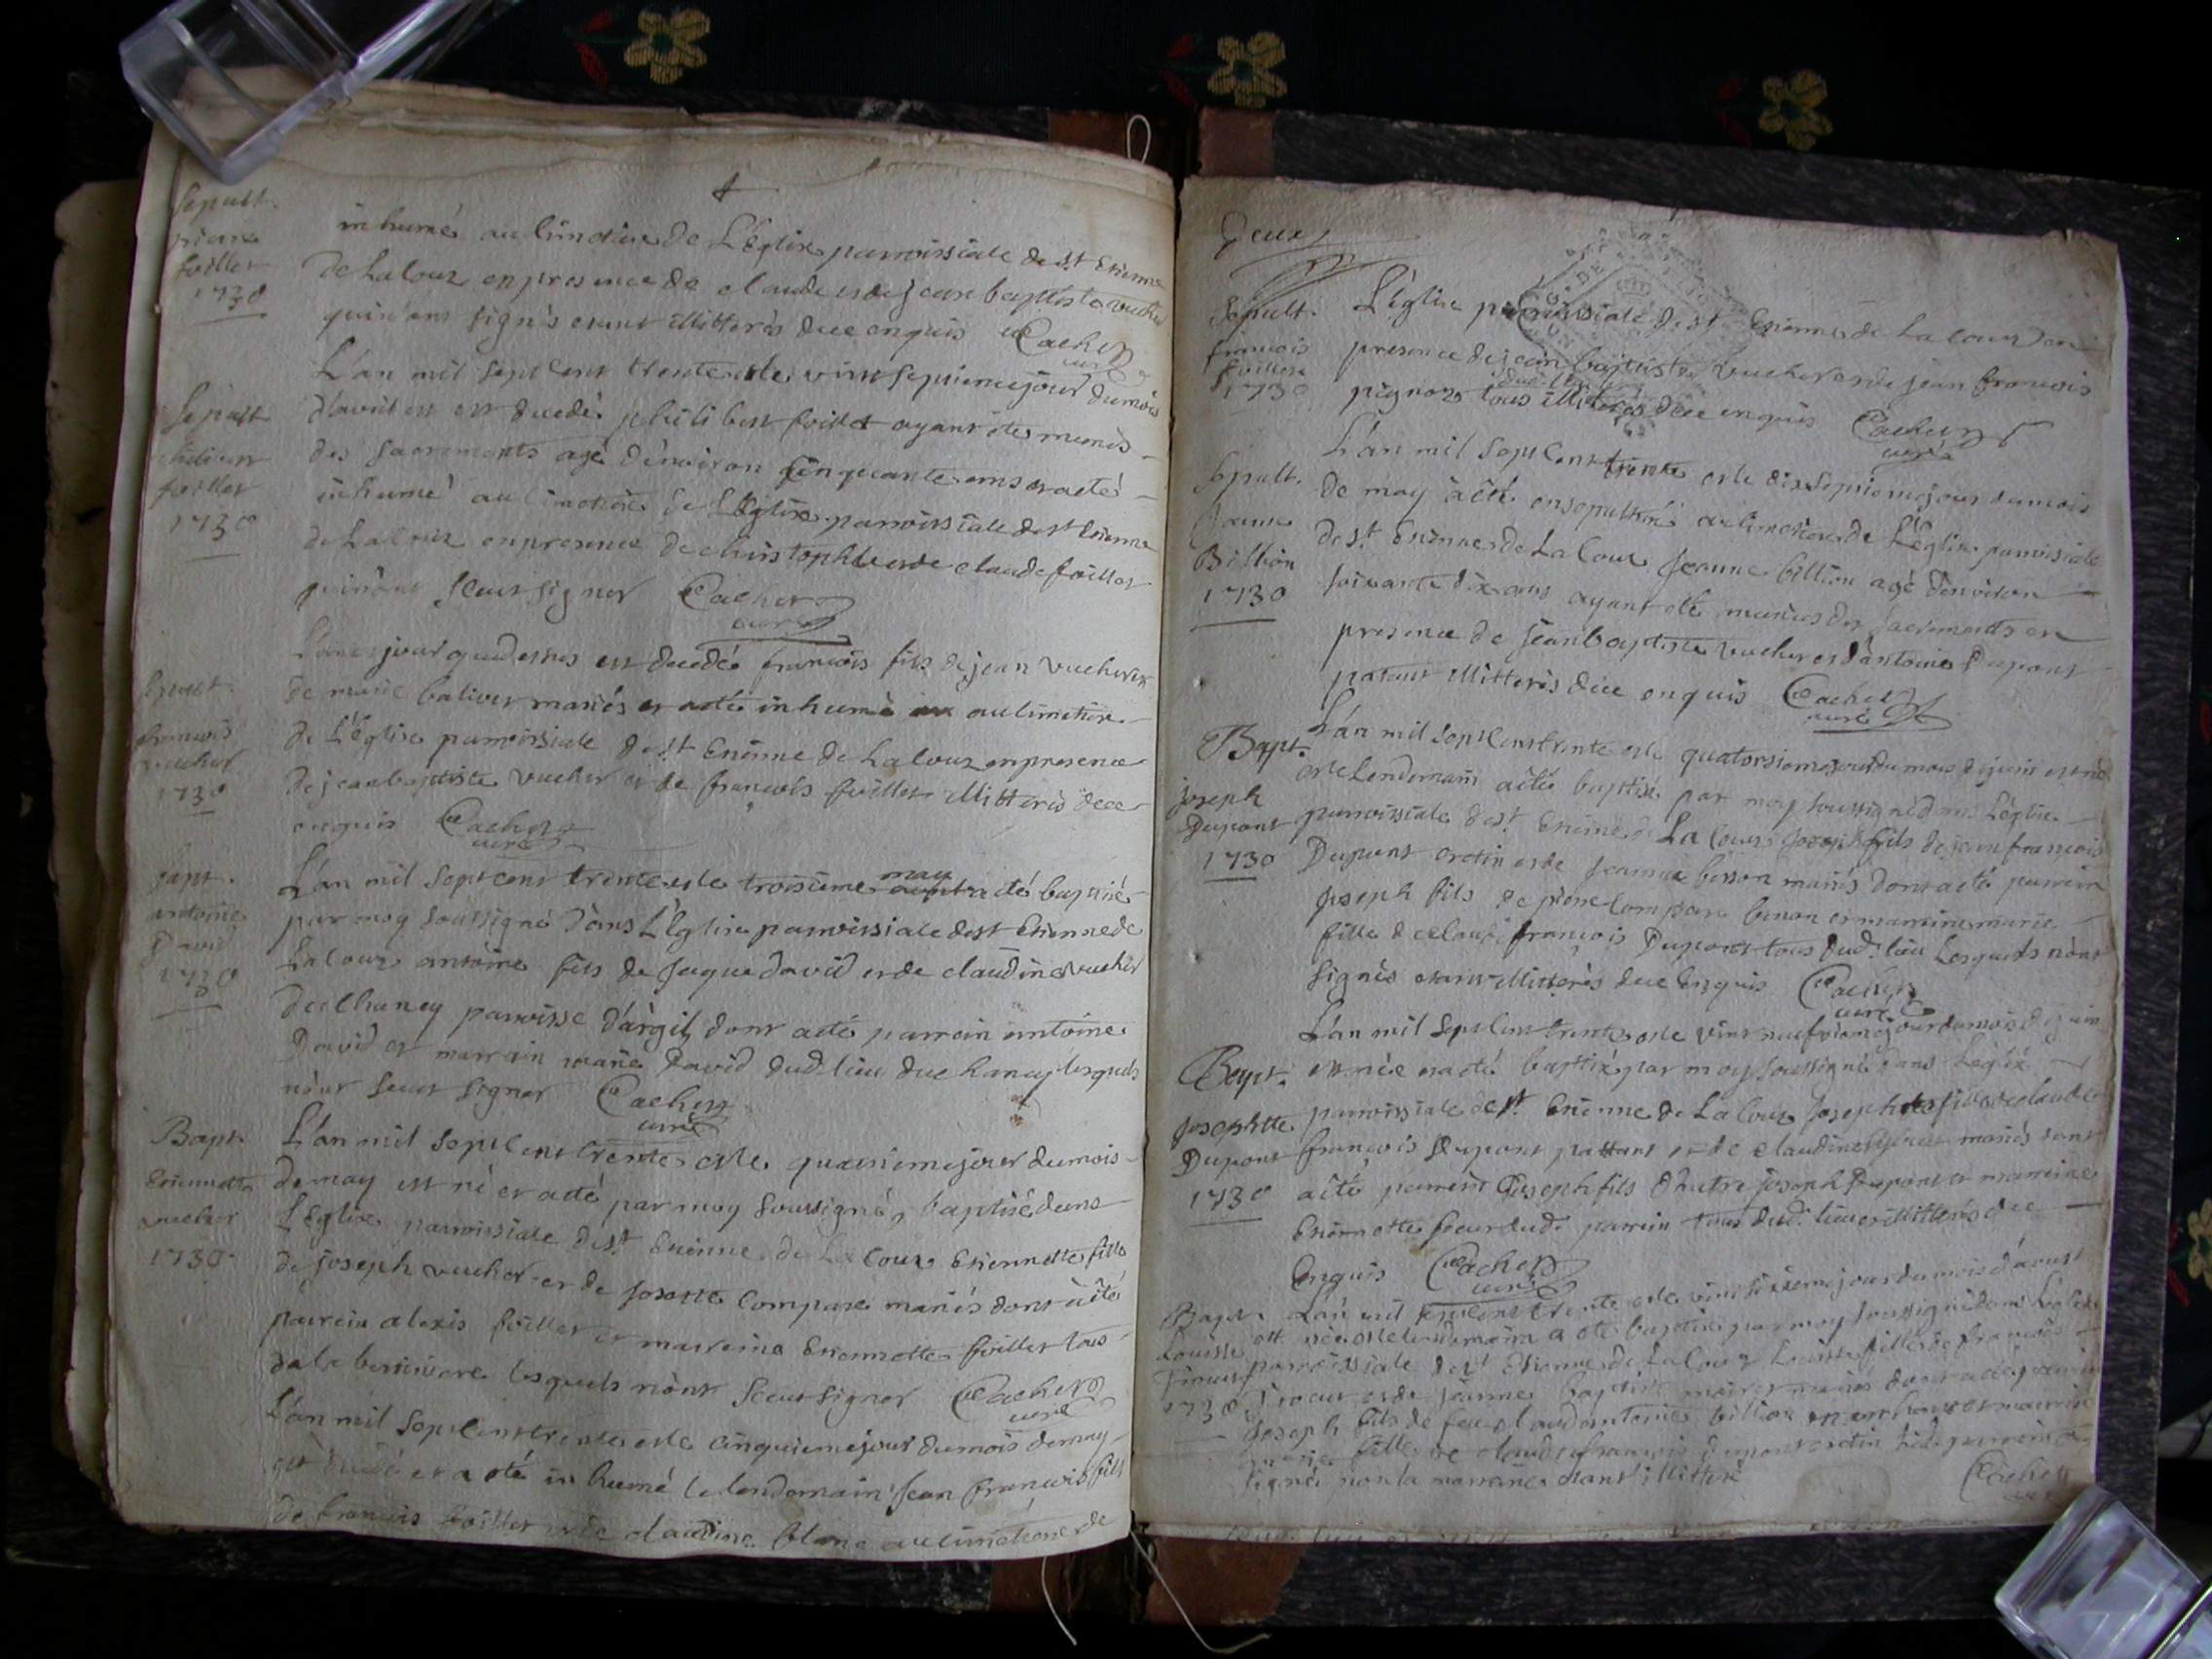 Sepult.
pierre
foillet
1730
inhumé au cimetiere de L'Eglise parroissiale de st Etienne
de Lalour en presence de claude et de jean baptiste vucher
qui n'ont signés etant illitterés duee enquis Cachet
curé
Sepult
philibert
foillet
1730
L'an mil sept cent trente et le vint septieme jour du mois
d'avril est est decedé philibert foillet ayant ete munis
des sacrements agé d'environ cinquante ans et a eté
inhumé au cimetiere de L'Eglise parroissiale de st Etienne
de Lalour en presence de christophle et de claude foillet
qui n'ont sceut signer Cachet
curé
Sepult.
francois
vucher
1730
L'an et jour que dessus est decedé francois fils de jean vucher et
de marie balivet mariés et a eté inhumé au cimetiere
de L'Eglise parroissiale de st Etienne de Lalour en presence
de jean baptiste vucher et de francois foillet illitterés duee
enquis Cachet
curé
Bapt.
antoine
David
1730
L'an mil sept cent trente et le troisieme may a eté baptisé
par moy soussigné dans L'Eglise parroissiale de st Etienne de
Lalour antoine fils de jaque david et de claudine vucher
de chanay parroisse d'argis dont a eté parrain antoine
David et marrain marie David dud. lieu de chanay lesquels
n'ont sceut signer Cachet
curé
Bapt.
Etiennette
vucher
1730
L'an mil sept cent trente et le quatriemejour du mois
de may est né et a eté par moy soussigné, baptisé dans
L'Eglise parroissiale de st. Etienne de La cour Etiennette fille
de joseph vucher et de josette compare mariés dont a eté
parrain alexis foillet et marraine Etiennette foillet tous
de la lesquels n'ont sceut signer Cachet
curé
L'an mil sept cent trente et le cinquieme jour du mois de may
est decedé et a eté inhumé le lendemain jean francois fils
de francois foillet et de claudine blanc au cimetiere de
Deux
Sepult.
francois
foillet
1730
L'Eglise parroissiale de st Etienne de La cour en
presence de jean baptiste vucher et de jean francois
pignot dud. lieu tous illitterés duee enquis Cachet
curé
Sepult.
jeanne
Billion
1730
L'an mil sept cent trente et le dix septieme jour du mois
de may a eté ensepulturé au cimetiere de L'Eglise parroissiale
de st. Etienne de La lour jeanne billion agé d'environ
soixante dix ans ayant eté munies des sacrements en
presence de jean baptiste vucher et d'antoine Dupont
patant illitterés duee enquis Cachet
curé
Bapt.
joseph
Dupont
1730
L'an mil sept cent trente et le quatorsieme jour du mois de juin est né
et le Lendemain a eté baptisé par moy soussigné dans L'Eglise
parroissiale de st. Etienne de La cour joseph fils de jean francois
Dupont cretin et de jeanne bisson mariés dont a eté parrain
joseph fils de pierre compare et marraine marie
fille de claude francois Dupont tous dud. lieu Lesquels n'ont
signés etant illitterés duee enquis Cachet
curé
Bapt.
josephtte
Dupont
1730
L'an mil sept cent trente et le vint neufvieme jour du mois de juin
est née et a eté baptisé par moy soussigné dans L'Eglise
parroissiale de st. Etienne de La lour josephte fille de claude
francois Dupont pattant et de claudine mariés dont
a eté parrein joseph fils d'hautre joseph Dupont et marraine
Etiennette soeur dud. parrein tous dud. lieu et illitterés duee
enquis Cachet
curé
Bapt.
Louisse
1730
L'an mil sept cent trente et le vint sixieme jour du mois d'aoust
est née et le lendemain a eté baptisé par moy soussigné dans L'eglise
parroissiale de st Etienne de La lour Louisse fille de francois
et de jeanne baptiste mariés dont a eté parrain
joseph fils de feu claude antoine billion et marraine
fille de claude francois dupont cretin led. parrein a
signé non la marraine etant illitteré Cachet
curé